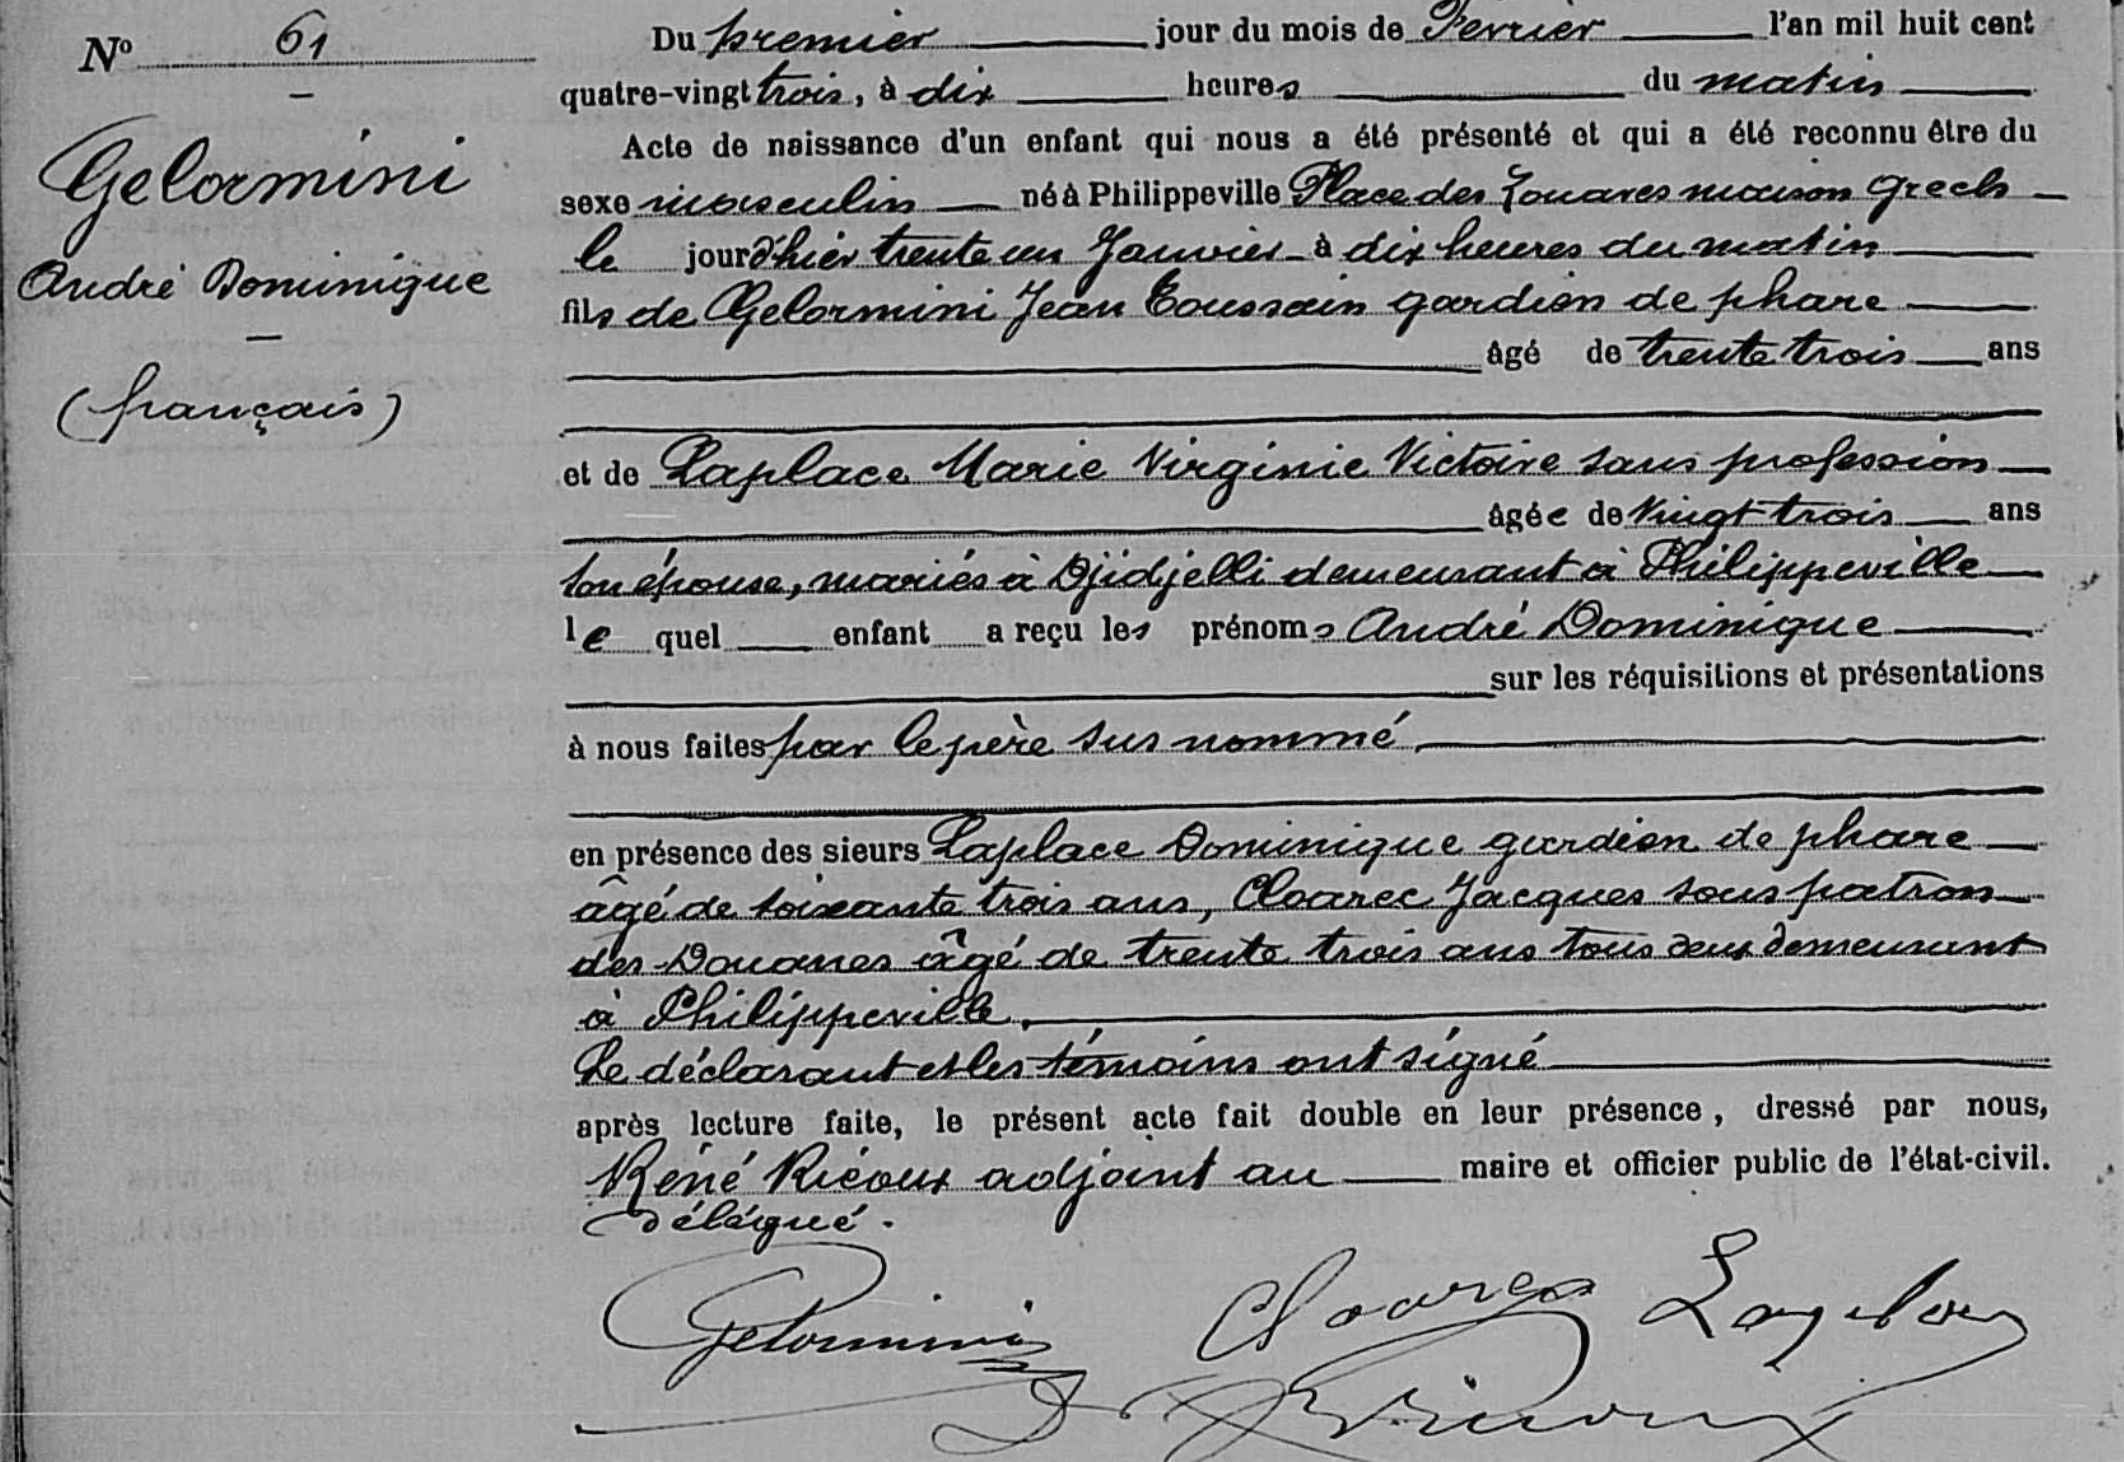 Nº 61
Gelormini
André Dominique
(français)
Du premier jour du mois de Février l'an mil huit cent
quatre-vingt trois, à dix heures du matin
Acte de naissance d'un enfant qui nous a été présenté et qui a été reconnu être du
sexe masculin né à Philippeville Place des Zouaves maison Grech
le jour d'hier trente un Janvier à dix heures du matin
fils de Gelormini Jean Toussain gardien de phare
âgé de trente trois ans
et de Laplace Marie Virginie Victoire sans profession
âgée de vingt trois ans
son épouse, mariés à Djidjelli demeurant à Philippeville
le quel enfant a reçu les prénoms André Dominique
sur les réquisitions et présentations
à nous faites par le père sus nommé
en présence des sieurs Laplace Dominique gardien de phare
âgé de soixante trois ans, Cloarec Jacques sous patron
des Douanes âgé de trente trois ans tous deux demeurant
à Philippeville.
Le déclarant et les témoins ont signé
après lecture faite, le présent acte fait double en leur présence, dressé par nous,
René Ricoux adjoint au maire et officier public de l'état-civil.
délégué.
Gelormini Cloarec Laplace
Dr Ricoux